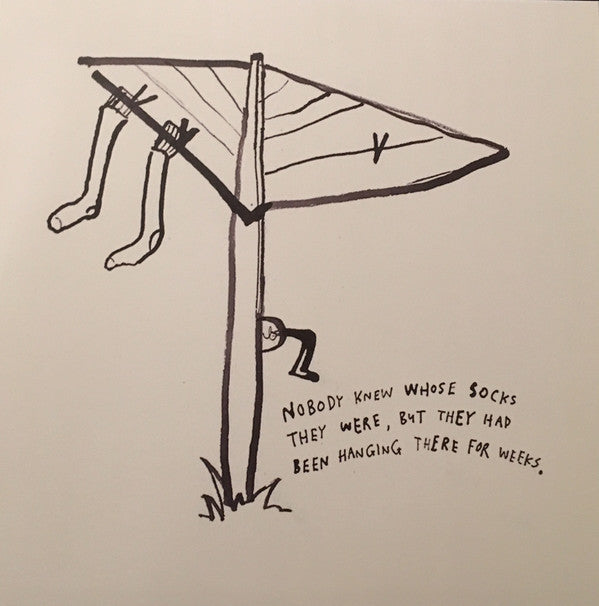 NOBODY KNEW WHOSE SOCKS
THEY WERE, BUT THEY HAD
BEEN HANGING THERE FOR WEEKS.